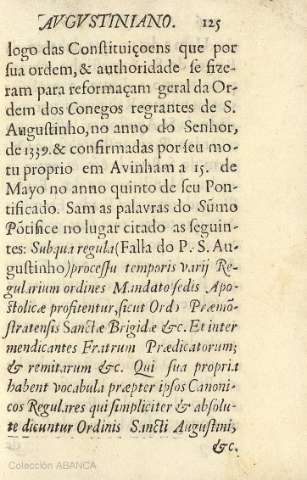 AVGVSTINIANO. 125
logo das Constituiçoens que por
sua ordem, & authoridade se fize-
ram para reformaçam geral da Or-
dem dos Conegos regrantes de S.
Augustinho, no anno do Senhor,
de 1339. & confirmadas por seu mo-
tu proprio em Avinham a 15. de
Mayo no anno quinto de seu Pon-
tificado. Sam as palavras do Sũmo
Põtifice no lugar citado as seguin-
tes: Sub qua regula (Falla do P. S. Au-
gustinho) processu temporis varij Re-
gularium ordines Mandato sedis Apo-
stolicæ profitentur, sicut Ordo Præmõ-
stratensis Sanctæ Brigidæ &c. Et inter
mendicantes Fratrum Prædicatorum;
& remitarum &c. Qui sua propria
habent vocabula præpter ipsos Canoni-
cos Regulares qui simpliciter & absolu-
te dicuntur Ordinis Sancti Augustini,
&c.
Colección ABANCA